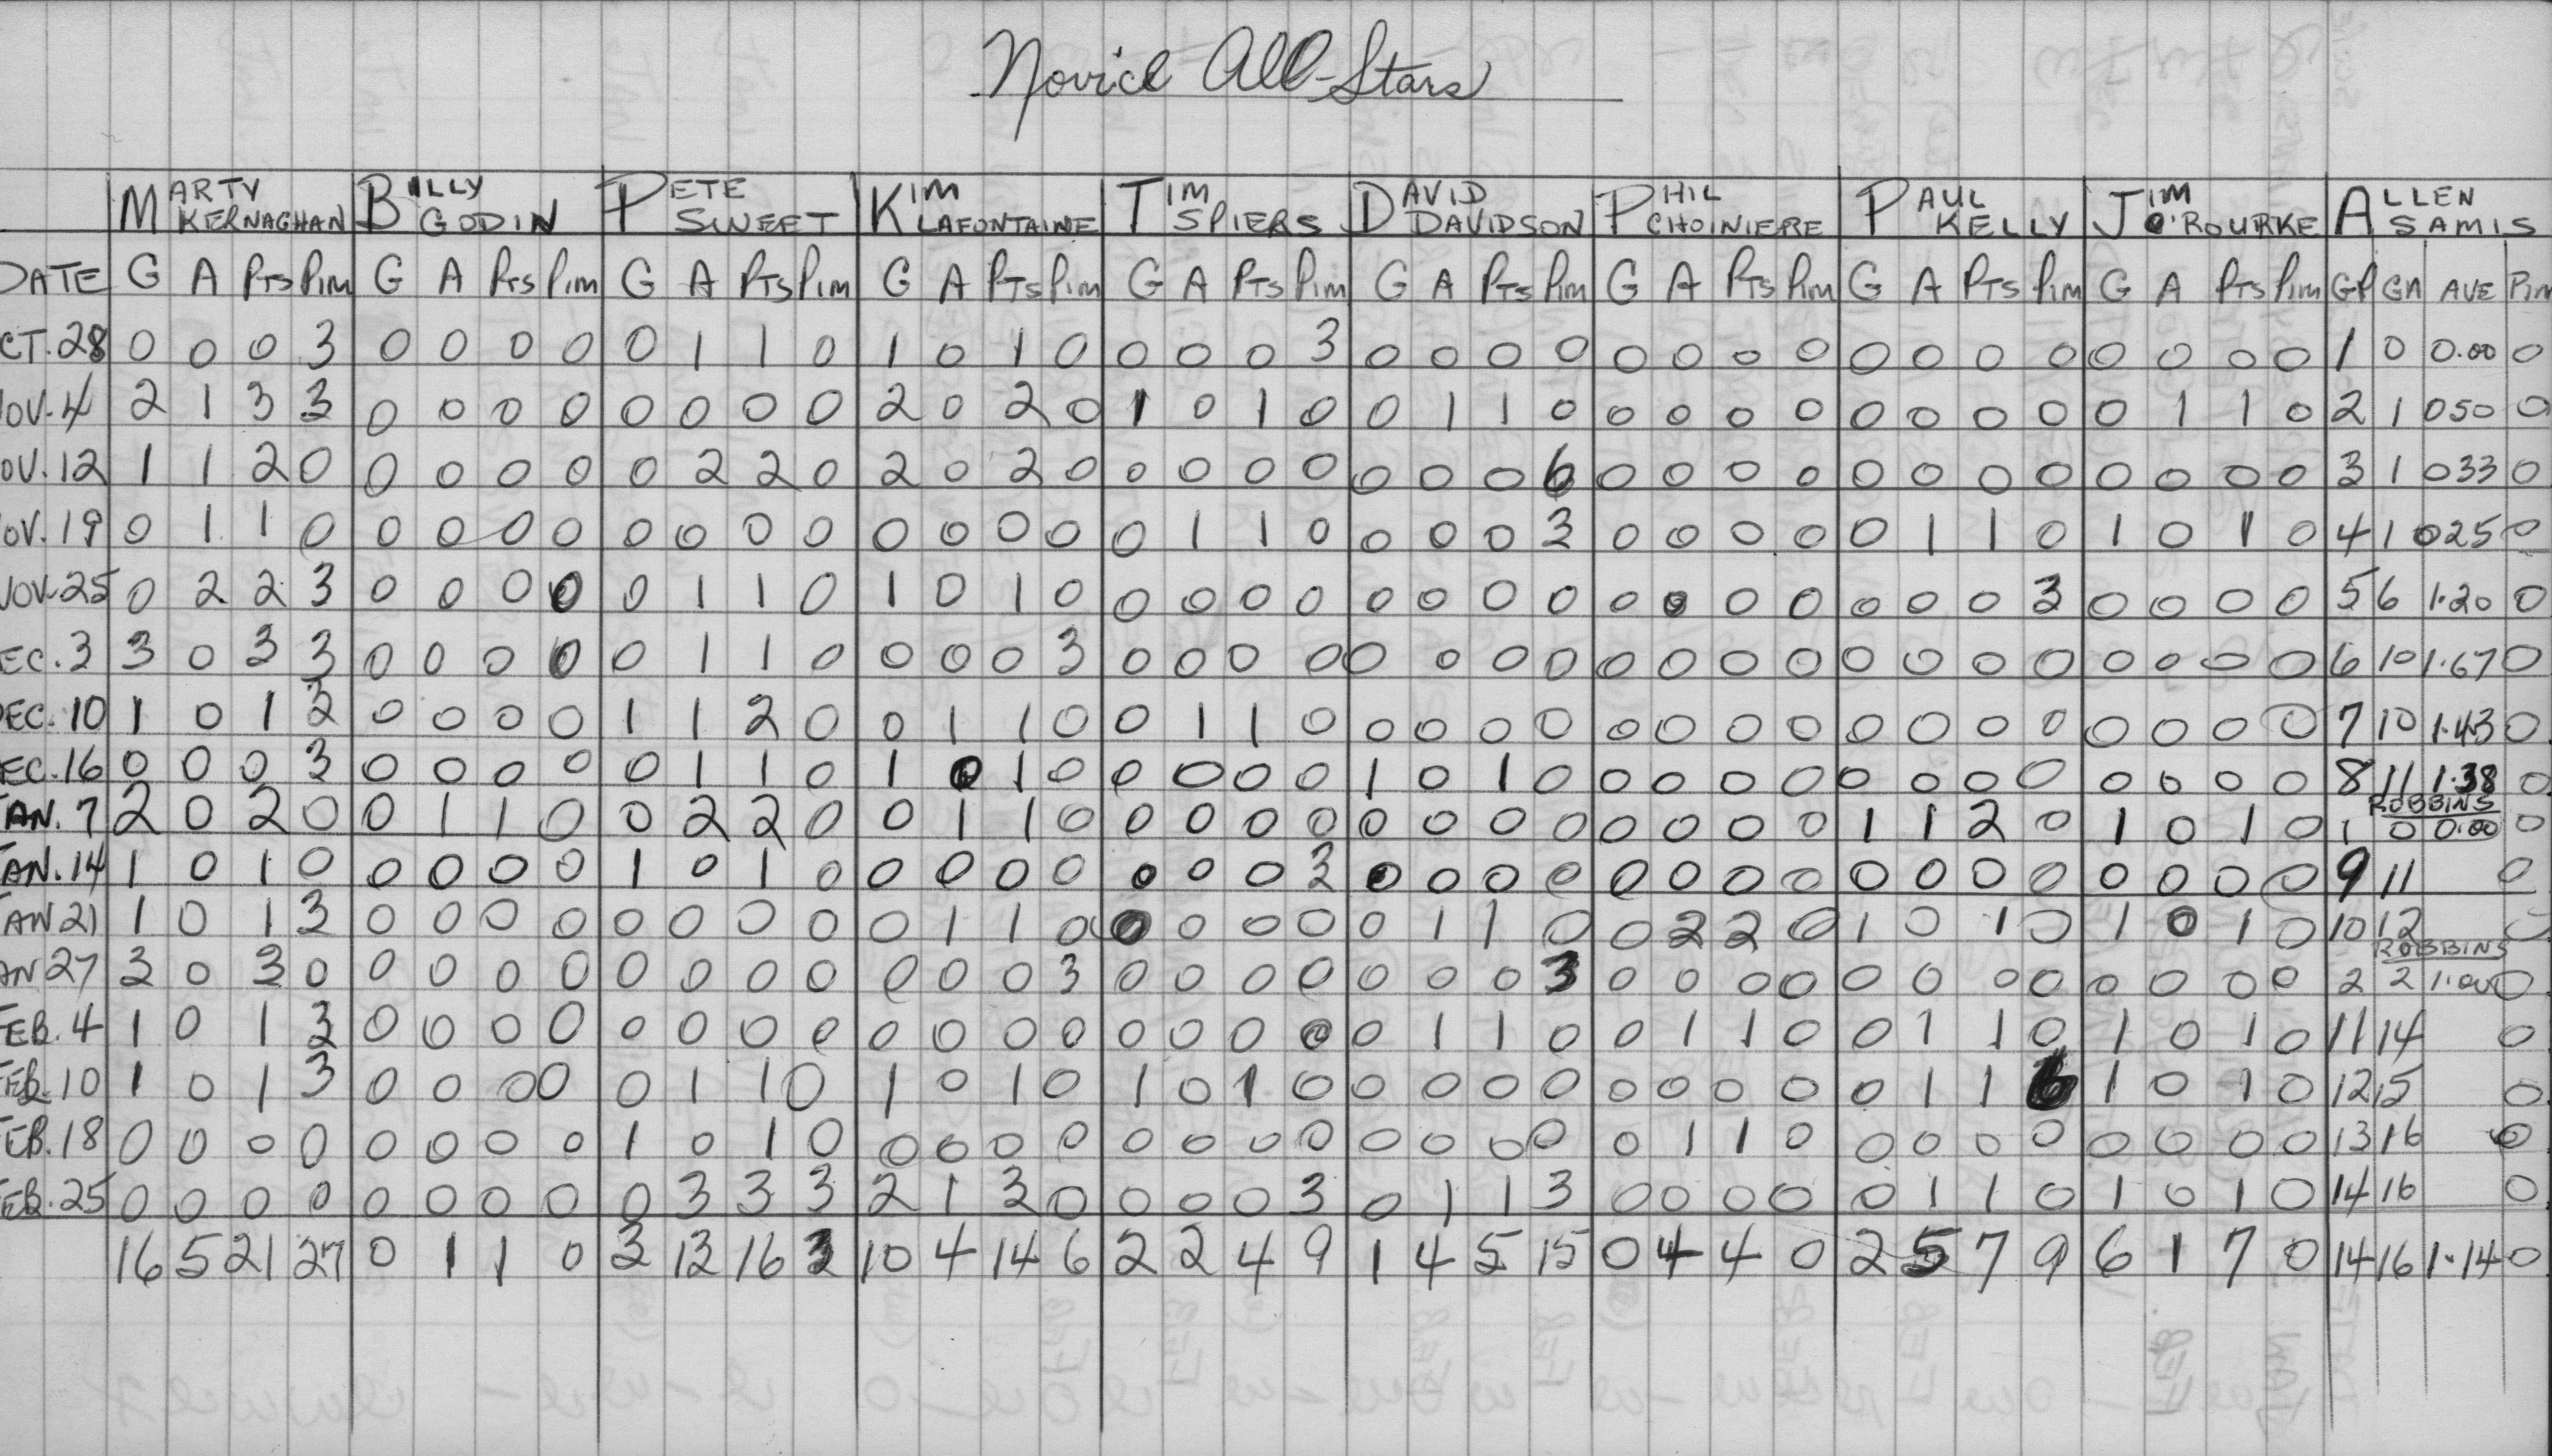 Novice All-Stars
MARTY KERNAGHAN BILLY GODIN PETE SWEET KIM LAFONTAINE TIM SPIERS DAVID DAVIDSON PHIL CHOINIERE PAUL KELLY JIM O'ROURKE ALLEN SAMIS
DATE G A PTS PIM G A PTS PIM G A PTS PIM G A PTS PIM G A PTS PIM G A PTS PIM G A PTS PIM G A PTS PIM G A PTS PIM GP GA AVE PIM
CT. 28 0 0 0 3 0 0 0 0 0 1 1 0 1 0 1 0 0 0 0 3 0 0 0 0 0 0 0 0 0 0 0 0 0 0 0 0 1 0 0.00 0
OV. 4 2 1 3 3 0 0 0 0 0 0 0 0 2 0 2 0 1 0 1 0 0 1 1 0 0 0 0 0 0 0 0 0 0 1 1 0 2 1 050 0
OV. 12 1 1 2 0 0 0 0 0 0 2 2 0 2 0 2 0 0 0 0 0 0 0 0 6 0 0 0 0 0 0 0 0 0 0 0 0 3 1 033 0
OV. 19 0 1 1 0 0 0 0 0 0 0 0 0 0 0 0 0 0 1 1 0 0 0 0 3 0 0 0 0 0 1 1 0 1 0 1 0 4 1 025 0
NOV. 25 0 2 2 3 0 0 0 0 0 1 1 0 1 0 1 0 0 0 0 0 0 0 0 0 0 0 0 0 0 0 0 3 0 0 0 0 5 6 1.20 0
EC. 3 3 0 3 3 0 0 0 0 0 1 1 0 0 0 0 3 0 0 0 0 0 0 0 0 0 0 0 0 0 0 0 0 0 0 0 0 6 10 1.67 0
EC. 10 1 0 1 3 0 0 0 0 1 1 2 0 0 1 1 0 0 1 1 0 0 0 0 0 0 0 0 0 0 0 0 0 0 0 0 0 7 10 1.43 0
EC. 16 0 0 0 3 0 0 0 0 0 1 1 0 1 0 1 0 0 0 0 0 1 0 1 0 0 0 0 0 0 0 0 0 0 0 0 0 8 11 1.38 0
ROBBINS
JAN. 7 2 0 2 0 0 1 1 0 0 2 2 0 0 1 1 0 0 0 0 0 0 0 0 0 0 0 0 0 1 1 2 0 1 0 1 0 1 0 0.00 0
AN. 14 1 0 1 0 0 0 0 0 1 0 1 0 0 0 0 0 0 0 0 3 0 0 0 0 0 0 0 0 0 0 0 0 0 0 0 0 9 11 0
JAN 21 1 0 1 3 0 0 0 0 0 0 0 0 0 1 1 0 0 0 0 0 0 1 1 0 0 2 2 0 1 0 1 0 1 0 1 0 10 12 0
ROBBINS
AN 27 3 0 3 0 0 0 0 0 0 0 0 0 0 0 0 3 0 0 0 0 0 0 0 3 0 0 0 0 0 0 0 0 0 0 0 0 2 2 1.00 0
FEB. 4 1 0 1 3 0 0 0 0 0 0 0 0 0 0 0 0 0 0 0 0 0 1 1 0 0 1 1 0 0 1 1 0 1 0 1 0 11 14 0
FEB. 10 1 0 1 3 0 0 0 0 0 1 1 0 1 0 1 0 1 0 1 0 0 0 0 0 0 0 0 0 0 1 1 6 1 0 1 0 12 15 0
FEB. 18 0 0 0 0 0 0 0 0 1 0 1 0 0 0 0 0 0 0 0 0 0 0 0 0 0 1 1 0 0 0 0 0 0 0 0 0 13 16 0
FEB. 25 0 0 0 0 0 0 0 0 0 3 3 3 2 1 3 0 0 0 0 3 0 1 1 3 0 0 0 0 0 1 1 0 1 0 1 0 14 16 0
16 5 21 27 0 1 1 0 3 13 16 3 10 4 14 6 2 2 4 9 1 4 5 15 0 4 4 0 2 5 7 9 6 1 7 0 14 16 1.14 0